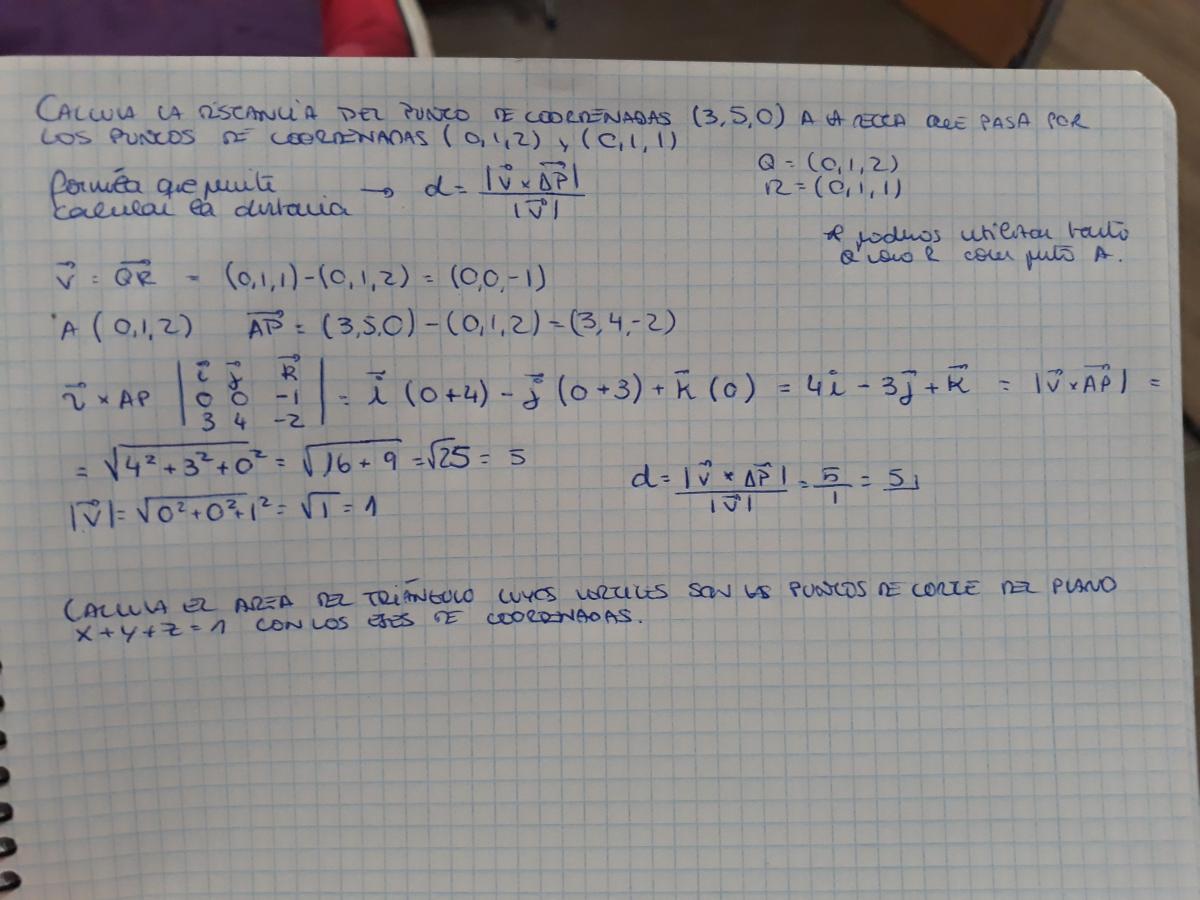 CALCULA LA DISTANCIA DEL PUNTO DE COORDENADAS (3,5,0) A LA RECTA QUE PASA POR
LOS PUNTOS DE COORDENADAS (0,1,2) y (0,1,1)
Q = (0,1,2)
R = (0,1,1)
formula que permite
calcular la distancia → d = |v⃗ × AP⃗| / |v⃗|
* podemos utilizar tanto
Q como R como punto A.
v⃗ = QR⃗ = (0,1,1)-(0,1,2) = (0,0,-1)
A (0,1,2) AP⃗ = (3,5,0)-(0,1,2)=(3,4,-2)
v⃗ × AP | i⃗ j⃗ k⃗ |
| 0 0 -1 | = i⃗ (0+4) - j⃗ (0+3) + k⃗ (0) = 4i⃗ - 3j⃗ + k⃗ = |v⃗ × AP⃗| =
| 3 4 -2 |
= √4² + 3² + 0² = √16 + 9 = √25 = 5
d = |v⃗ × AP⃗| / |v⃗| = 5/1 = 5
|v⃗| = √0² + 0² + 1² = √1 = 1
CALCULA EL AREA DEL TRIÁNGULO CUYOS VERTICES SON LOS PUNTOS DE CORTE DEL PLANO
x + y + z = 1 CON LOS EJES DE COORDENADAS.